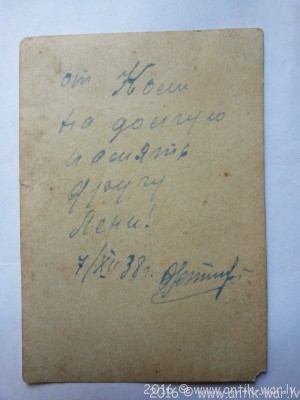 от Коли
на долгую
память
другу
Лени!
7/XII 38 г.
2016 © www.antik-war.lv